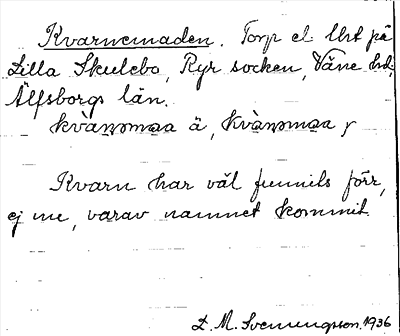 Kvarnemaden. Torp el. lht på
Lilla Skulebo, Ryr socken, Väne hd,
Älfsborgs län.
ä,
Kvarn har väl funnits förr,
ej nu, varav namnet kommit.
L. M. Svenungsson. 1936